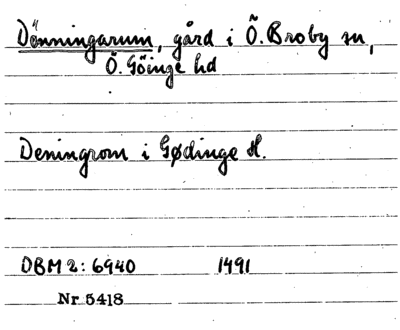 Dönningarum, gård i Ö. Broby sn,
Ö. Göinge hd
Deningrom i Gødinge H.
DBM 2: 6940 1491
Nr 5418